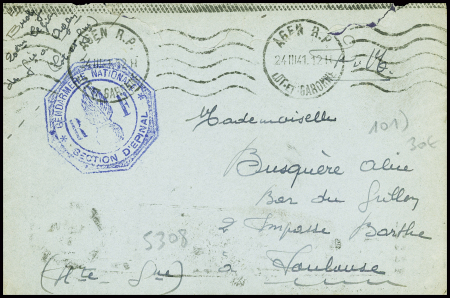 AGEN R.P.
24 III 41. 12 H
LOT-ET-GARONNE
AGEN R.P.
24 III 41. 12 H
LOT-ET-GARONNE
GENDARMERIE NATIONALE
R F
* SECTION D'EPINAL *
Mademoiselle
101)
30€
Busquère Aline
Bar du Grillon
2 Impasse Barthe
5308
(Hte Gne) à Toulouse